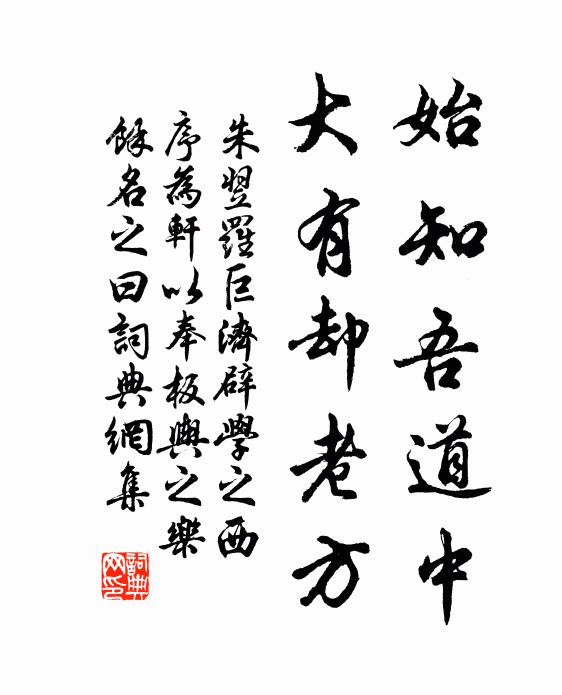 始知吾道中
大有却老方
朱翌羅巨濟辟學之西
序為軒以奉板輿之樂
餘名之曰詞典網集
詞典網印